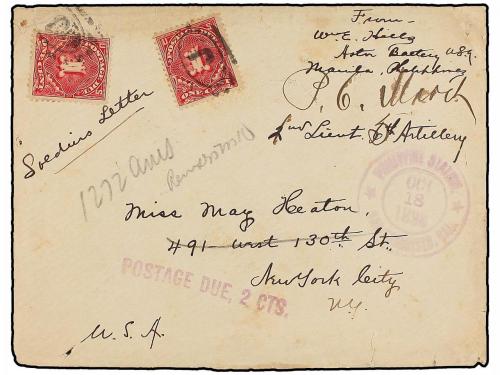 From-
Wm. E. Hills
Astor Battery U.S.A.
Manila, Philippines
P. C. March
2nd Lieut. 5th Artillery
Soldiers Letter
1272 Ams
PHILIPPINE STATION
OCT
18
1898
Miss May Heaton,
491 West 130th St.
POSTAGE DUE, 2 CTS.
New York City
N.Y.
U.S.A.